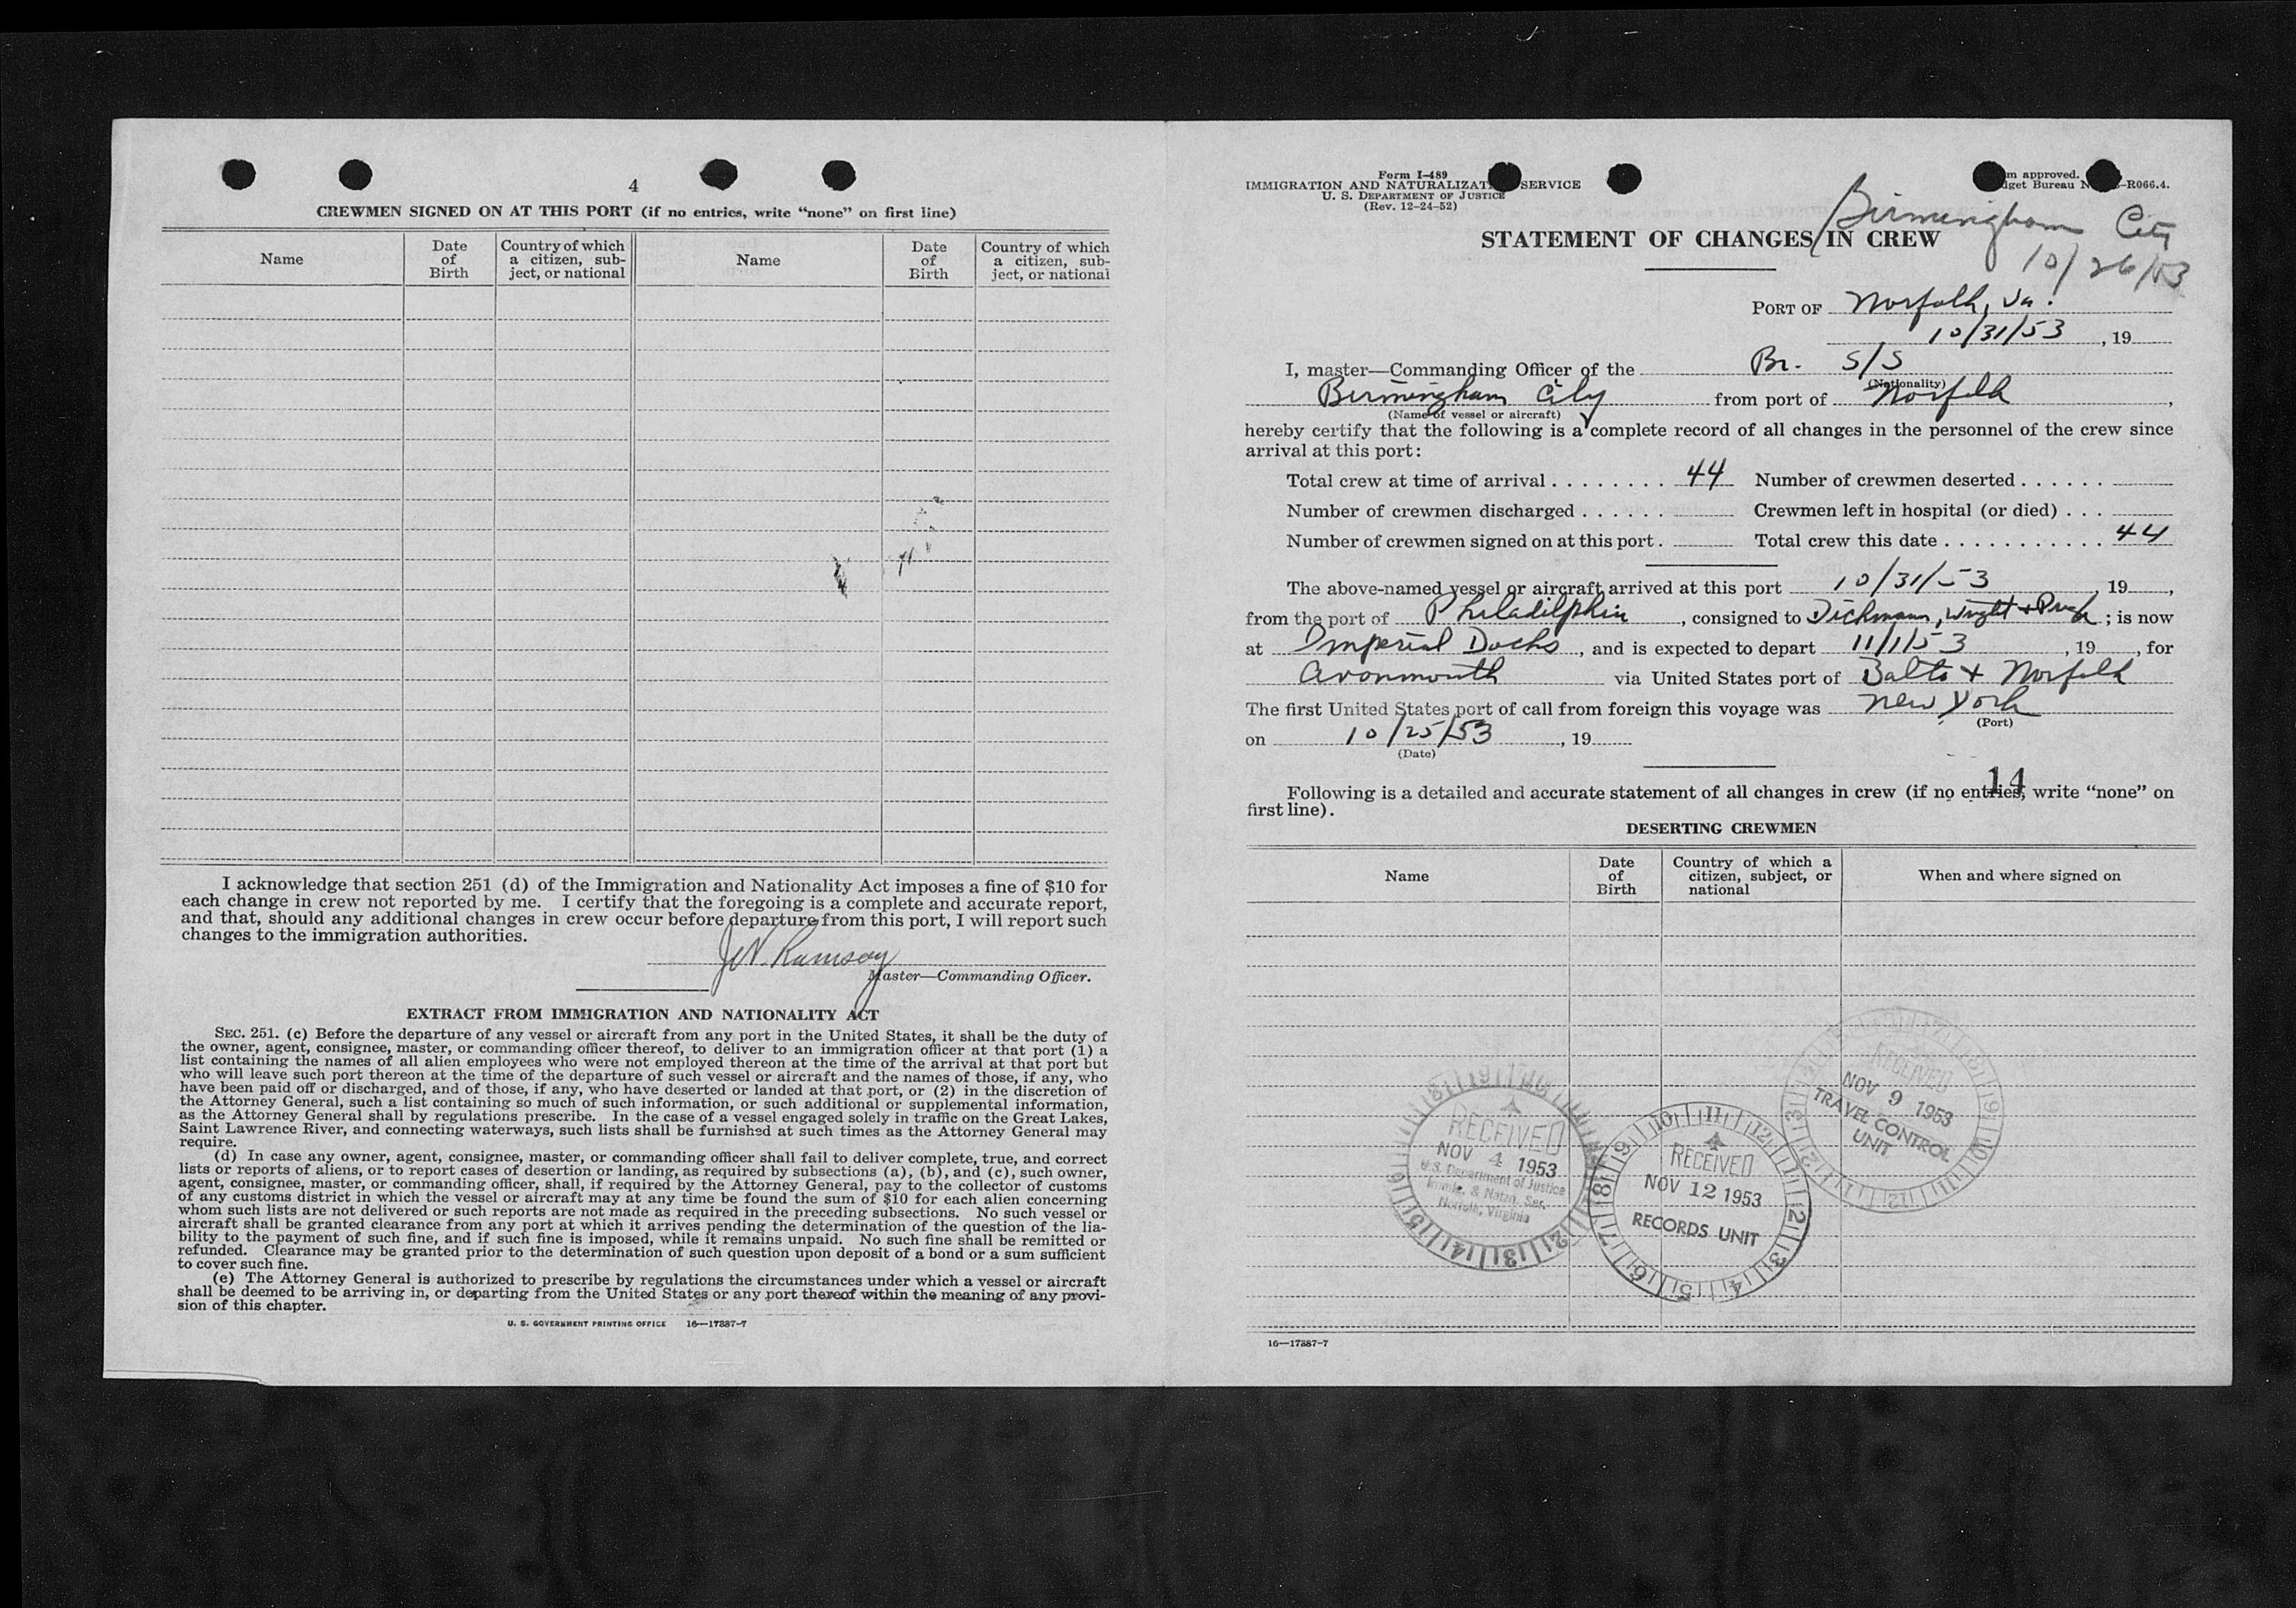 4
CREWMEN SIGNED ON AT THIS PORT (if no entries, write “none” on first line)
Name
Date of Birth
Country of which a citizen, subject, or national
Name
Date of Birth
Country of which a citizen, subject, or national
I acknowledge that section 251 (d) of the Immigration and Nationality Act imposes a fine of $10 for
each change in crew not reported by me. I certify that the foregoing is a complete and accurate report,
and that, should any additional changes in crew occur before departure from this port, I will report such
changes to the immigration authorities.
Ramsay
Master—Commanding Officer.
EXTRACT FROM IMMIGRATION AND NATIONALITY ACT
SEC. 251. (c) Before the departure of any vessel or aircraft from any port in the United States, it shall be the duty of
the owner, agent, consignee, master, or commanding officer thereof, to deliver to an immigration officer at that port (1) a
list containing the names of all alien employees who were not employed thereon at the time of the arrival at that port but
who will leave such port thereon at the time of the departure of such vessel or aircraft and the names of those, if any, who
have been paid off or discharged, and of those, if any, who have deserted or landed at that port, or (2) in the discretion of
the Attorney General, such a list containing so much of such information, or such additional or supplemental information,
as the Attorney General shall by regulations prescribe. In the case of a vessel engaged solely in traffic on the Great Lakes,
Saint Lawrence River, and connecting waterways, such lists shall be furnished at such times as the Attorney General may
require.
(d) In case any owner, agent, consignee, master, or commanding officer shall fail to deliver complete, true, and correct
lists or reports of aliens, or to report cases of desertion or landing, as required by subsections (a), (b), and (c), such owner,
agent, consignee, master, or commanding officer, shall, if required by the Attorney General, pay to the collector of customs
of any customs district in which the vessel or aircraft may at any time be found the sum of $10 for each alien concerning
whom such lists are not delivered or such reports are not made as required in the preceding subsections. No such vessel or
aircraft shall be granted clearance from any port at which it arrives pending the determination of the question of the lia-
bility to the payment of such fine, and if such fine is imposed, while it remains unpaid. No such fine shall be remitted or
refunded. Clearance may be granted prior to the determination of such question upon deposit of a bond or a sum sufficient
to cover such fine.
(e) The Attorney General is authorized to prescribe by regulations the circumstances under which a vessel or aircraft
shall be deemed to be arriving in, or departing from the United States or any port thereof within the meaning of any provi-
sion of this chapter.
U. S. GOVERNMENT PRINTING OFFICE 16—17387-7
Form I-489
IMMIGRATION AND NATURALIZAT SERVICE
U. S. DEPARTMENT OF JUSTICE
(Rev. 12-24-52)
m approved.
dget Bureau N -R066.4.
Birmingham City
10/26/53
STATEMENT OF CHANGES IN CREW
PORT OF Norfolk, Va.
10/31/53, 19
I, master—Commanding Officer of the Br. S/S
(Nationality)
Birmingham City from port of Norfolk,
(Name of vessel or aircraft)
hereby certify that the following is a complete record of all changes in the personnel of the crew since
arrival at this port:
Total crew at time of arrival . . . . . . . . 44 Number of crewmen deserted . . . . . .
Number of crewmen discharged . . . . . . Crewmen left in hospital (or died) . . .
Number of crewmen signed on at this port . Total crew this date . . . . . . . . . . . 44
The above-named vessel or aircraft arrived at this port 10/31/53, 19,
from the port of Philadelphia, consigned to Dichmann, Wright & Pugh; is now
at Imperial Docks, and is expected to depart 11/1/53, 19, for
Avonmouth via United States port of Balto + Norfolk
The first United States port of call from foreign this voyage was New York
(Port)
on 10/25/53, 19
(Date)
14
Following is a detailed and accurate statement of all changes in crew (if no entries, write “none” on
first line).
DESERTING CREWMEN
Name
Date of Birth
Country of which a citizen, subject, or national
When and where signed on
RECEIVED
NOV 4 1953
U.S. Department of Justice
Immig. & Natzn. Ser.
Norfolk, Virginia
RECEIVED
NOV 12 1953
RECORDS UNIT
RECEIVED
NOV 9 1953
TRAVEL CONTROL
UNIT
16—17387-7